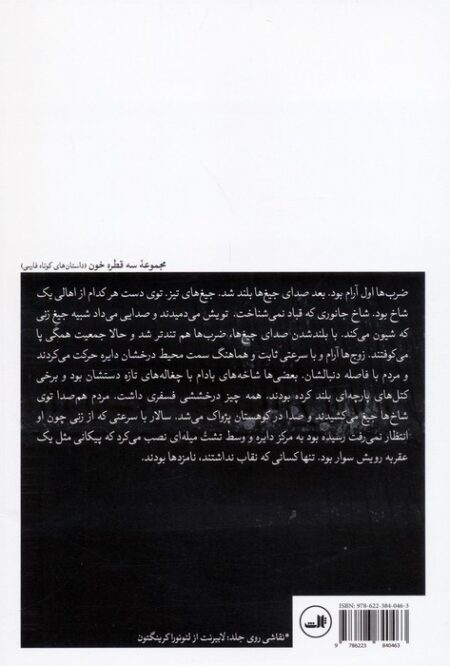 مجموعهٔ سه قطره خون (داستان‌های کوتاه فارسی)
ضرب‌ها اول آرام بود. بعد صدای جیغ‌ها بلند شد. جیغ‌های تیز. توی دست هر کدام از اهالی یک
شاخ بود. شاخ جانوری که قباد نمی‌شناخت. تویش می‌دمیدند و صدایی می‌داد شبیه جیغ زنی
که شیون می‌کند. با بلندشدن صدای جیغ‌ها، ضرب‌ها هم تندتر شد و حالا جمعیت همگی پا
می‌کوفتند. زوج‌ها آرام و با سرعتی ثابت و هماهنگ سمت محیط درخشان دایره حرکت می‌کردند
و مردم با فاصله دنبالشان. بعضی‌ها شاخه‌های بادام با چغاله‌های تازه دستشان بود و برخی
کتل‌های پارچه‌ای بلند کرده بودند. همه چیز درخششی فسفری داشت. مردم هم‌صدا توی
شاخ‌ها جیغ می‌کشیدند و صدا در کوهستان پژواک می‌شد. سالار با سرعتی که از زنی چون او
انتظار نمی‌رفت رسیده بود به مرکز دایره و وسط تشت میله‌ای نصب می‌کرد که پیکانی مثل یک
عقربه رویش سوار بود. تنها کسانی که نقاب نداشتند، نامزدها بودند.
*نقاشی روی جلد: لابیرنت از لئونورا کرینگتون
ثالث
ISBN: 978-622-384-046-3
9 786223 840463